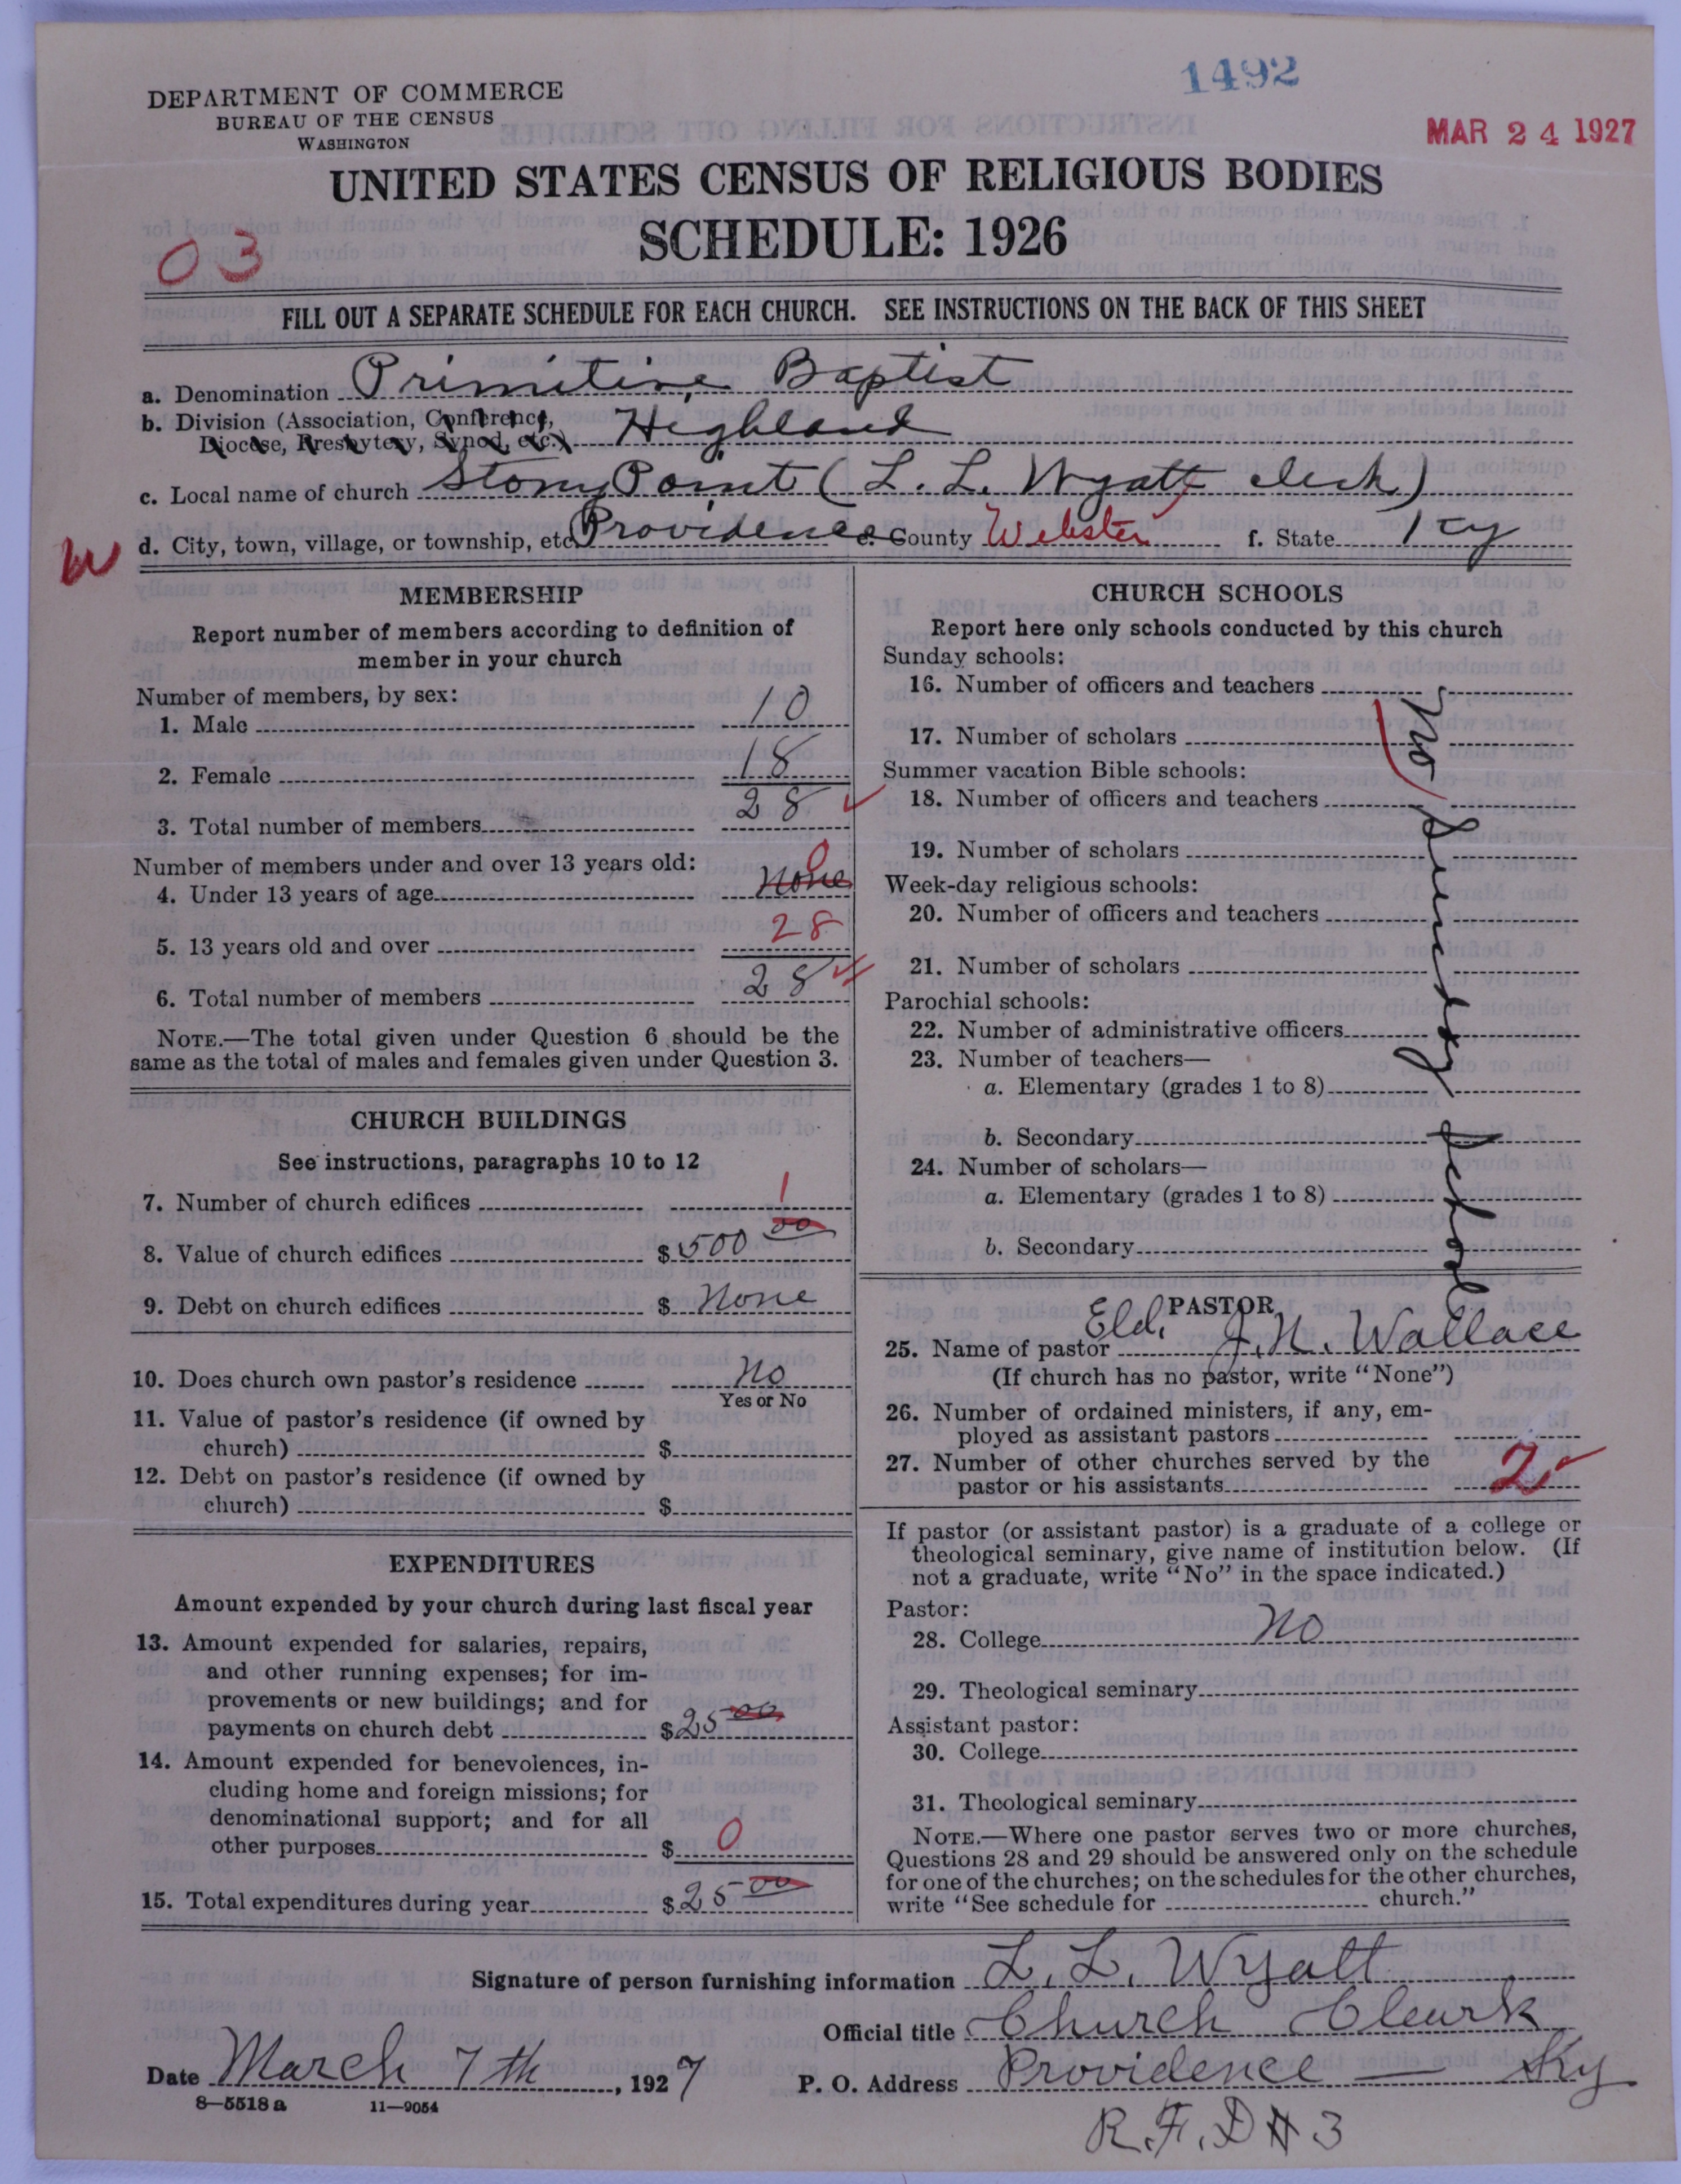 1492
DEPARTMENT OF COMMERCE
BUREAU OF THE CENSUS
WASHINGTON
MAR 24 1927
UNITED STATES CENSUS OF RELIGIOUS BODIES
SCHEDULE: 1926
03
FILL OUT A SEPARATE SCHEDULE FOR EACH CHURCH. SEE INSTRUCTIONS ON THE BACK OF THIS SHEET
a. Denomination Primitive Baptist
b. Division (Association, Conference,
Diocese, Presbytery, Synod, etc.) Highland
c. Local name of church Stony Point (L. L. Wyatt clerk)
W d. City, town, village, or township, etc. Providence e. County Webster f. State Ky
MEMBERSHIP
Report number of members according to definition of
member in your church
Number of members, by sex:
1. Male 10
2. Female 18
3. Total number of members 28
Number of members under and over 13 years old:
4. Under 13 years of age None 0
5. 13 years old and over 28
6. Total number of members 28
NOTE.—The total given under Question 6 should be the
same as the total of males and females given under Question 3.
CHURCH BUILDINGS
See instructions, paragraphs 10 to 12
7. Number of church edifices 1
8. Value of church edifices $ 500 00
9. Debt on church edifices $ None
10. Does church own pastor's residence No
Yes or No
11. Value of pastor's residence (if owned by
church) $
12. Debt on pastor's residence (if owned by
church) $
EXPENDITURES
Amount expended by your church during last fiscal year
13. Amount expended for salaries, repairs,
and other running expenses; for im-
provements or new buildings; and for
payments on church debt $ 25 00
14. Amount expended for benevolences, in-
cluding home and foreign missions; for
denominational support; and for all
other purposes $ 0
15. Total expenditures during year $ 25 00
CHURCH SCHOOLS
Report here only schools conducted by this church
Sunday schools:
16. Number of officers and teachers
17. Number of scholars
Summer vacation Bible schools:
18. Number of officers and teachers
19. Number of scholars
Week-day religious schools:
20. Number of officers and teachers
21. Number of scholars
Parochial schools:
22. Number of administrative officers
23. Number of teachers—
a. Elementary (grades 1 to 8)
b. Secondary
24. Number of scholars—
a. Elementary (grades 1 to 8)
b. Secondary
No Sunday School
PASTOR
25. Name of pastor Eld. J. N. Wallace
(If church has no pastor, write "None")
26. Number of ordained ministers, if any, em-
ployed as assistant pastors
27. Number of other churches served by the
pastor or his assistants 2
If pastor (or assistant pastor) is a graduate of a college or
theological seminary, give name of institution below. (If
not a graduate, write "No" in the space indicated.)
Pastor:
28. College No
29. Theological seminary
Assistant pastor:
30. College
31. Theological seminary
NOTE.—Where one pastor serves two or more churches,
Questions 28 and 29 should be answered only on the schedule
for one of the churches; on the schedules for the other churches,
write "See schedule for church."
Signature of person furnishing information L. L. Wyatt
Official title Church Cleark
Date March 7th, 1927 P. O. Address Providence — Ky
8—5518 a 11—9054
R.F.D # 3